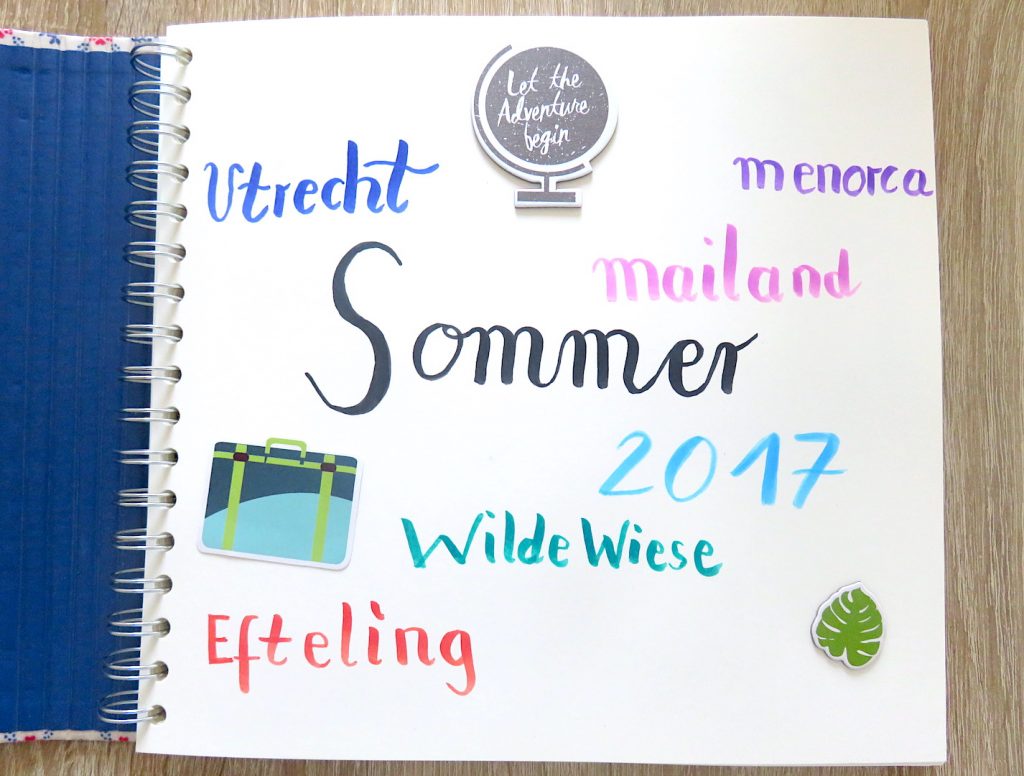 Let the
Adventure
begin
Utrecht
menorca
mailand
Sommer
2017
Wilde Wiese
Efteling